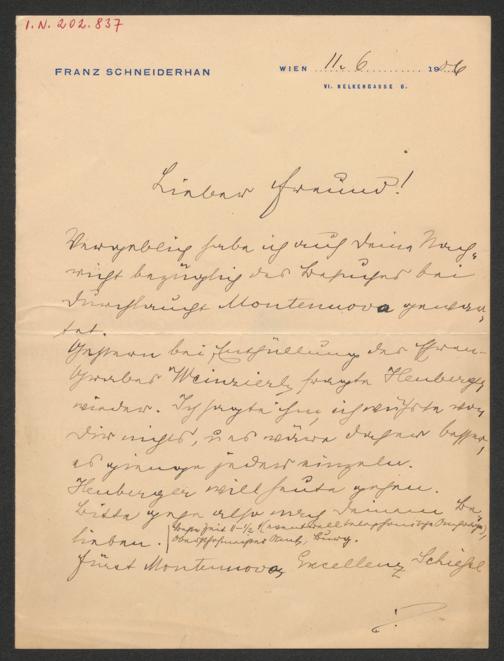 I.N. 202.837
FRANZ SCHNEIDERHAN
WIEN 11. 6 1906
VI. NELKENGASSE 6.
Lieber Freund!
Vergeblich habe ich auf Deine Nach-
richt bezüglich des Besuches bei
Durchlaucht Montenuovo gewar-
tet.
Gestern bei Enthüllung des Ehren-
Grabes Weinzierl, fragte Heuberger
wieder. Ich sagte ihm, ich wüßte von
Dir nichts, u es wäre daher besser,
es gienge jeder einzeln.
Heuberger will heute gehen.
Bitte gehe also nach Deinem Be-
lieben.
Beste Zeit eventuell telephonische Anfrage,
Burg.
Fürst Montenuovo, Excellenz Schießl